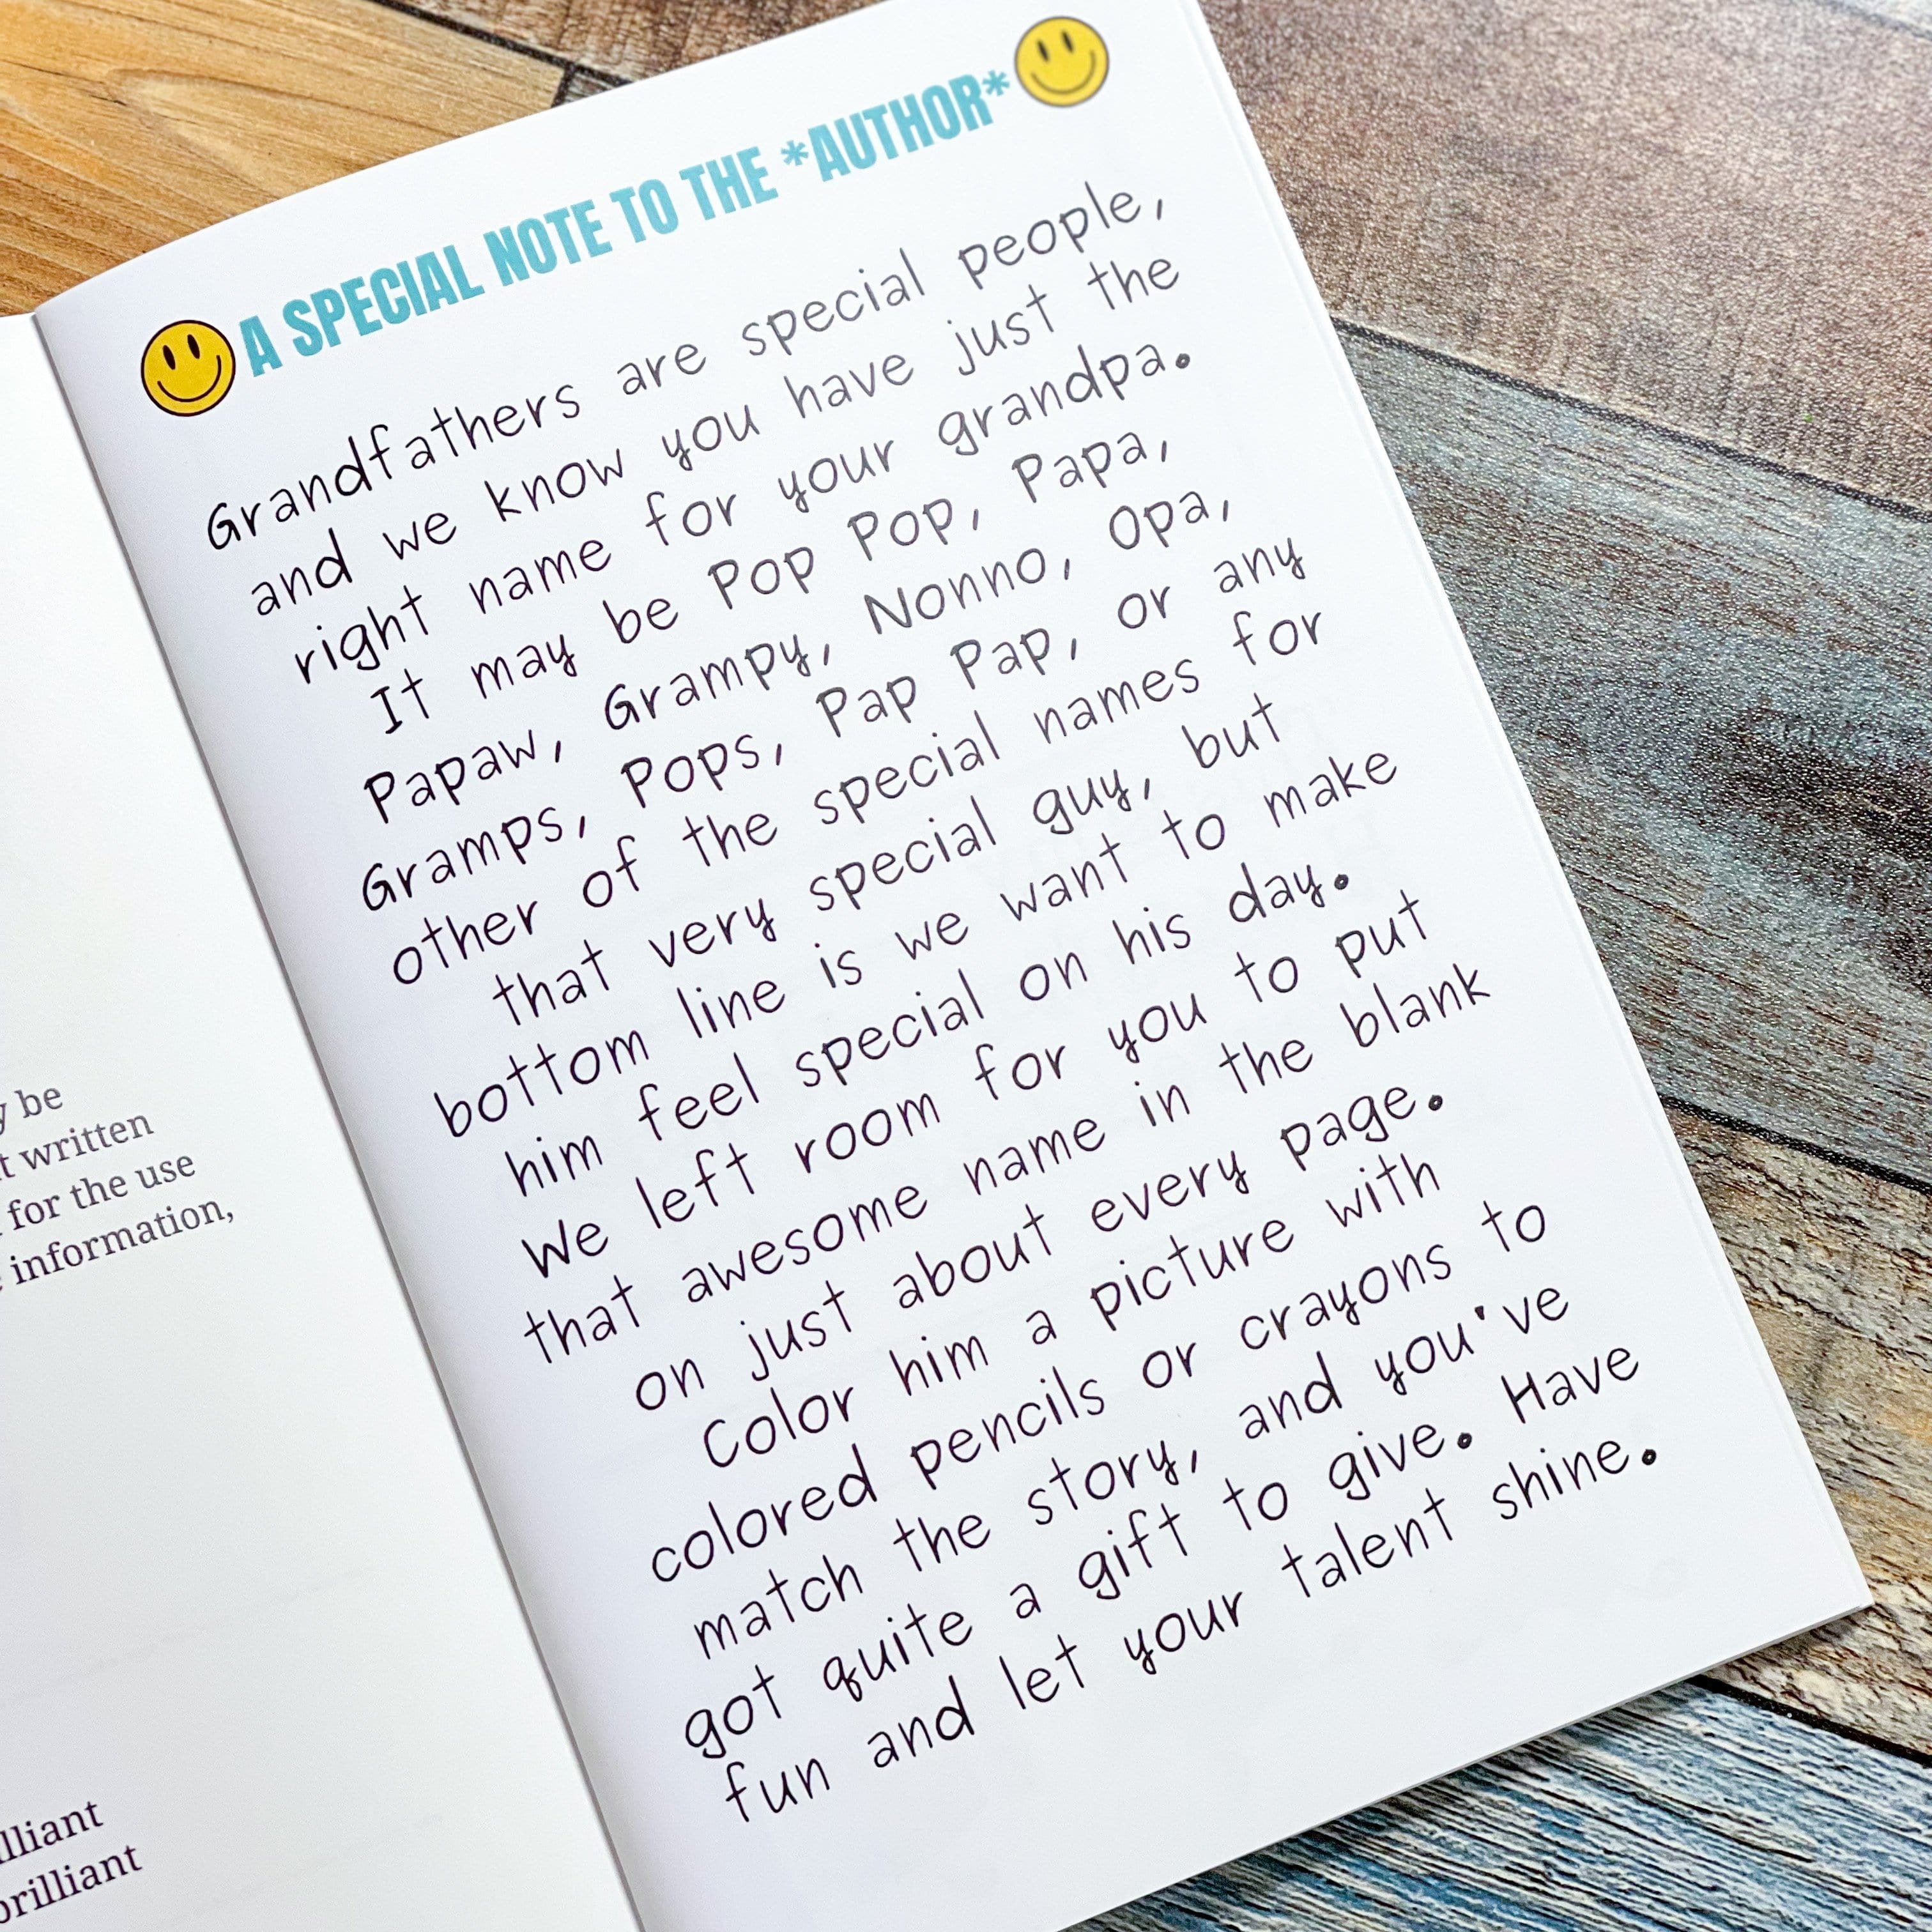 y be
t written
for the use
information,
lliant
brilliant
A SPECIAL NOTE TO THE *AUTHOR*
Grandfathers are special people,
and we know you have just the
right name for your grandpa.
It may be Pop Pop, Papa,
Papaw, Grampy, Nonno, Opa,
Gramps, Pops, Pap Pap, or any
other of the special names for
that very special guy, but
bottom line is we want to make
him feel special on his day.
We left room for you to put
that awesome name in the blank
on just about every page.
Color him a picture with
colored pencils or crayons to
match the story, and you've
got quite a gift to give. Have
fun and let your talent shine.